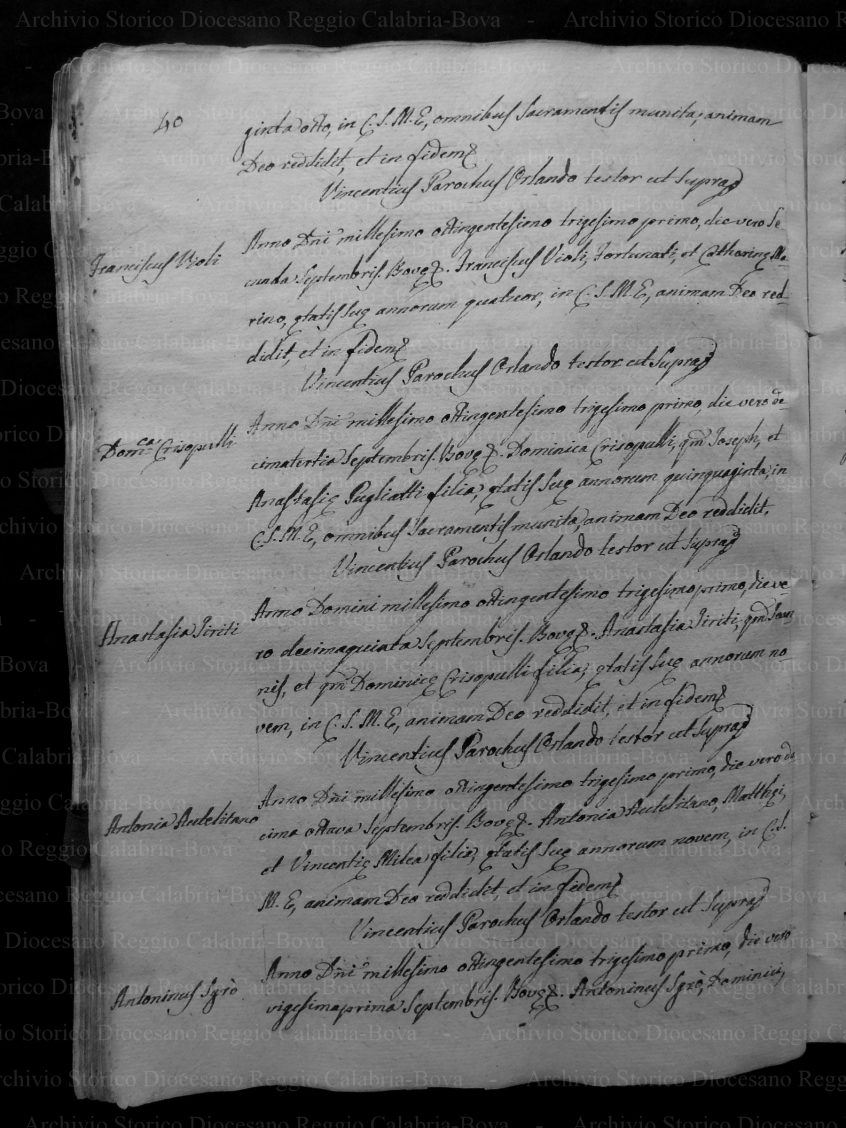 40
ginta octo, in C. S. M. E, omnibus Sacramentis munita, animam
Deo reddidit, et in fidem
Vincentius Parochus Orlando testor ut supra
Franciscus Violi
Anno Dñi millesimo octingentesimo trigesimo primo, die vero Se-
cunda Septembris. Bovę. Franciscus Violi, Fortunati, et Catharinę Ma-
rino, ętatis suę annorum quatuor, in C. S. M. E, animam Deo red-
didit, et in fidem
Vincentius Parochus Orlando testor ut supra
Domca Crisopulli
Anno Dñi millesimo octingentesimo trigesimo primo, die vero de
cimatertia Septembris. Bovę. Dominica Crisopulli, qm Joseph, et
Anastasię Pugliatti filia, ętatis suę annorum quinquaginta, in
C. S. M. E, omnibus Sacramentis munita, animam Deo reddidit,
Vincentius Parochus Orlando testor ut supra
Anastasia Iiriti
Anno Domini millesimo octingentesimo trigesimo primo, die ve
ro decimaquinta Septembris. Bovę. Anastasia Iiriti, qm Joan
nis, et qm Dominicę Crisopulli filia, ętatis suę annorum no
vem, in C. S. M. E, animam Deo reddidit, et in fidem
Vincentius Parochus Orlando testor ut supra
Antonia Autelitano
Anno Dñi millesimo octingentesimo trigesimo primo, die vero de
cima octava Septembris. Bovę. Antonia Autelitano, Matthęi,
et Vincentię Milea filia, ętatis suę annorum novem, in C. S.
M. E, animam Deo reddidit, et in fidem
Vincentius Parochus Orlando testor ut supra
Antoninus Sgrò
Anno Dñi millesimo octingentesimo trigesimo primo, die vero
vigesimaprima Septembris. Bovę. Antoninus Sgrò, Dominici,
Archivio Storico Diocesano Reggio Calabria-Bova